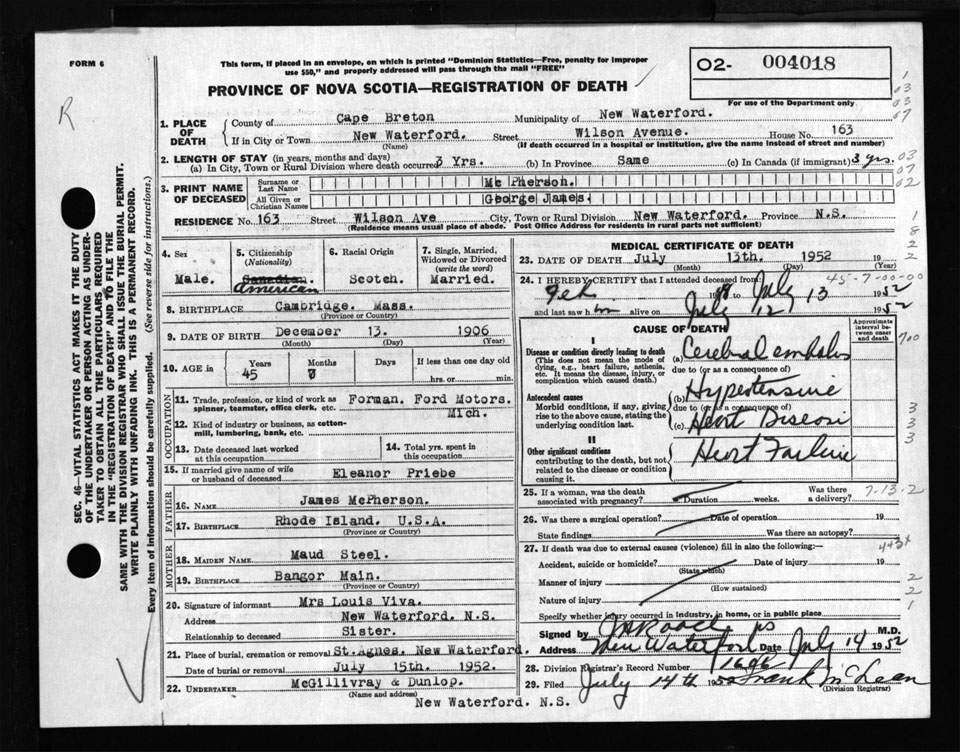 FORM 6
This form, if placed in an envelope, on which is printed "Dominion Statistics—Free, penalty for improper
use $50," and properly addressed will pass through the mail "FREE"
PROVINCE OF NOVA SCOTIA—REGISTRATION OF DEATH
O2- 004018
For use of the Department only
R
SEC. 46—VITAL STATISTICS ACT MAKES IT THE DUTY
OF THE UNDERTAKER OR PERSON ACTING AS UNDER-
TAKER TO OBTAIN ALL THE PARTICULARS REQUIRED
IN THE "REGISTRATION OF DEATH" AND TO FILE THE
SAME WITH THE DIVISION REGISTRAR WHO SHALL ISSUE THE BURIAL PERMIT.
WRITE PLAINLY WITH UNFADING INK. THIS IS A PERMANENT RECORD.
Every item of Information should be carefully supplied. (See reverse side for instructions.)
1. PLACE OF DEATH
County of Cape Breton Municipality of New Waterford.
If in City or Town New Waterford. Street Wilson Avenue. House No. 163
(Name) (If death occurred in a hospital or institution, give the name instead of street and number)
2. LENGTH OF STAY (in years, months and days)
(a) In City, Town or Rural Division where death occurred 3 Yrs. (b) In Province Same (c) In Canada (if immigrant) 3 yrs.
3. PRINT NAME OF DECEASED
Surname or Last Name Mc Pherson.
All Given or Christian Names George James.
RESIDENCE No. 163 Street Wilson Ave City, Town or Rural Division New Waterford. Province N.S.
(Residence means usual place of abode. Post Office Address for residents in rural parts not sufficient)
4. Sex Male.
5. Citizenship (Nationality) Canadian. American
6. Racial Origin Scotch.
7. Single, Married, Widowed or Divorced (write the word) Married.
8. BIRTHPLACE Cambridge. Mass.
(Province or Country)
9. DATE OF BIRTH December 13. 1906
(Month) (Day) (Year)
10. AGE in Years 45 Months 7 Days If less than one day old hrs. or min.
OCCUPATION
11. Trade, profession, or kind of work as spinner, teamster, office clerk, etc. Forman. Ford Motors. Mich.
12. Kind of industry or business, as cotton-mill, lumbering, bank, etc.
13. Date deceased last worked at this occupation
14. Total yrs. spent in this occupation
15. If married give name of wife or husband of deceased Eleanor Priebe
FATHER
16. NAME James McPherson.
17. BIRTHPLACE Rhode Island. U.S.A.
(Province or Country)
MOTHER
18. MAIDEN NAME Maud Steel.
19. BIRTHPLACE Bangor Main.
(Province or Country)
20. Signature of informant Mrs Louis Viva.
Address New Waterford. N.S.
Relationship to deceased Sister.
21. Place of burial, cremation or removal St. Agnes. New Waterford.
Date of burial or removal July 15th. 1952.
22. UNDERTAKER McGillivray & Dunlop.
(Name and address)
New Waterford. N.S.
MEDICAL CERTIFICATE OF DEATH
23. DATE OF DEATH July 13th. 1952
(Month) (Day) (Year)
45-7-00-00
24. I HEREBY CERTIFY that I attended deceased from
Feb 19 July 13 1952
and last saw him alive on July 12 1952
CAUSE OF DEATH
Approximate interval between onset and death
I
Disease or condition directly leading to death
(This does not mean the mode of dying, e.g., heart failure, asthenia, etc. It means the disease, injury, or complication which caused death.)
(a) Cerebral embolus
due to (or as a consequence of)
Antecedent causes
Morbid conditions, if any, giving rise to the above cause, stating the underlying condition last.
(b) Hypertensive
due to (or as a consequence of)
(c) Heart Disease
II
Other significant conditions
contributing to the death, but not related to the disease or condition causing it.
Heart Failure
25. If a woman, was the death associated with pregnancy? Duration weeks. Was there a delivery?
7-13-2
26. Was there a surgical operation? Date of operation 19
State findings Was there an autopsy?
27. If death was due to external causes (violence) fill in also the following:—
Accident, suicide or homicide? Date of injury 19
(State which)
Manner of injury
(How sustained)
Nature of injury
Specify whether injury occurred in industry, in home, or in public place
Signed by M.D.
Address New Waterford Date July 14 1952
28. Division Registrar's Record Number 1696
29. Filed July 14th 1952 Frank McLean
(Division Registrar)